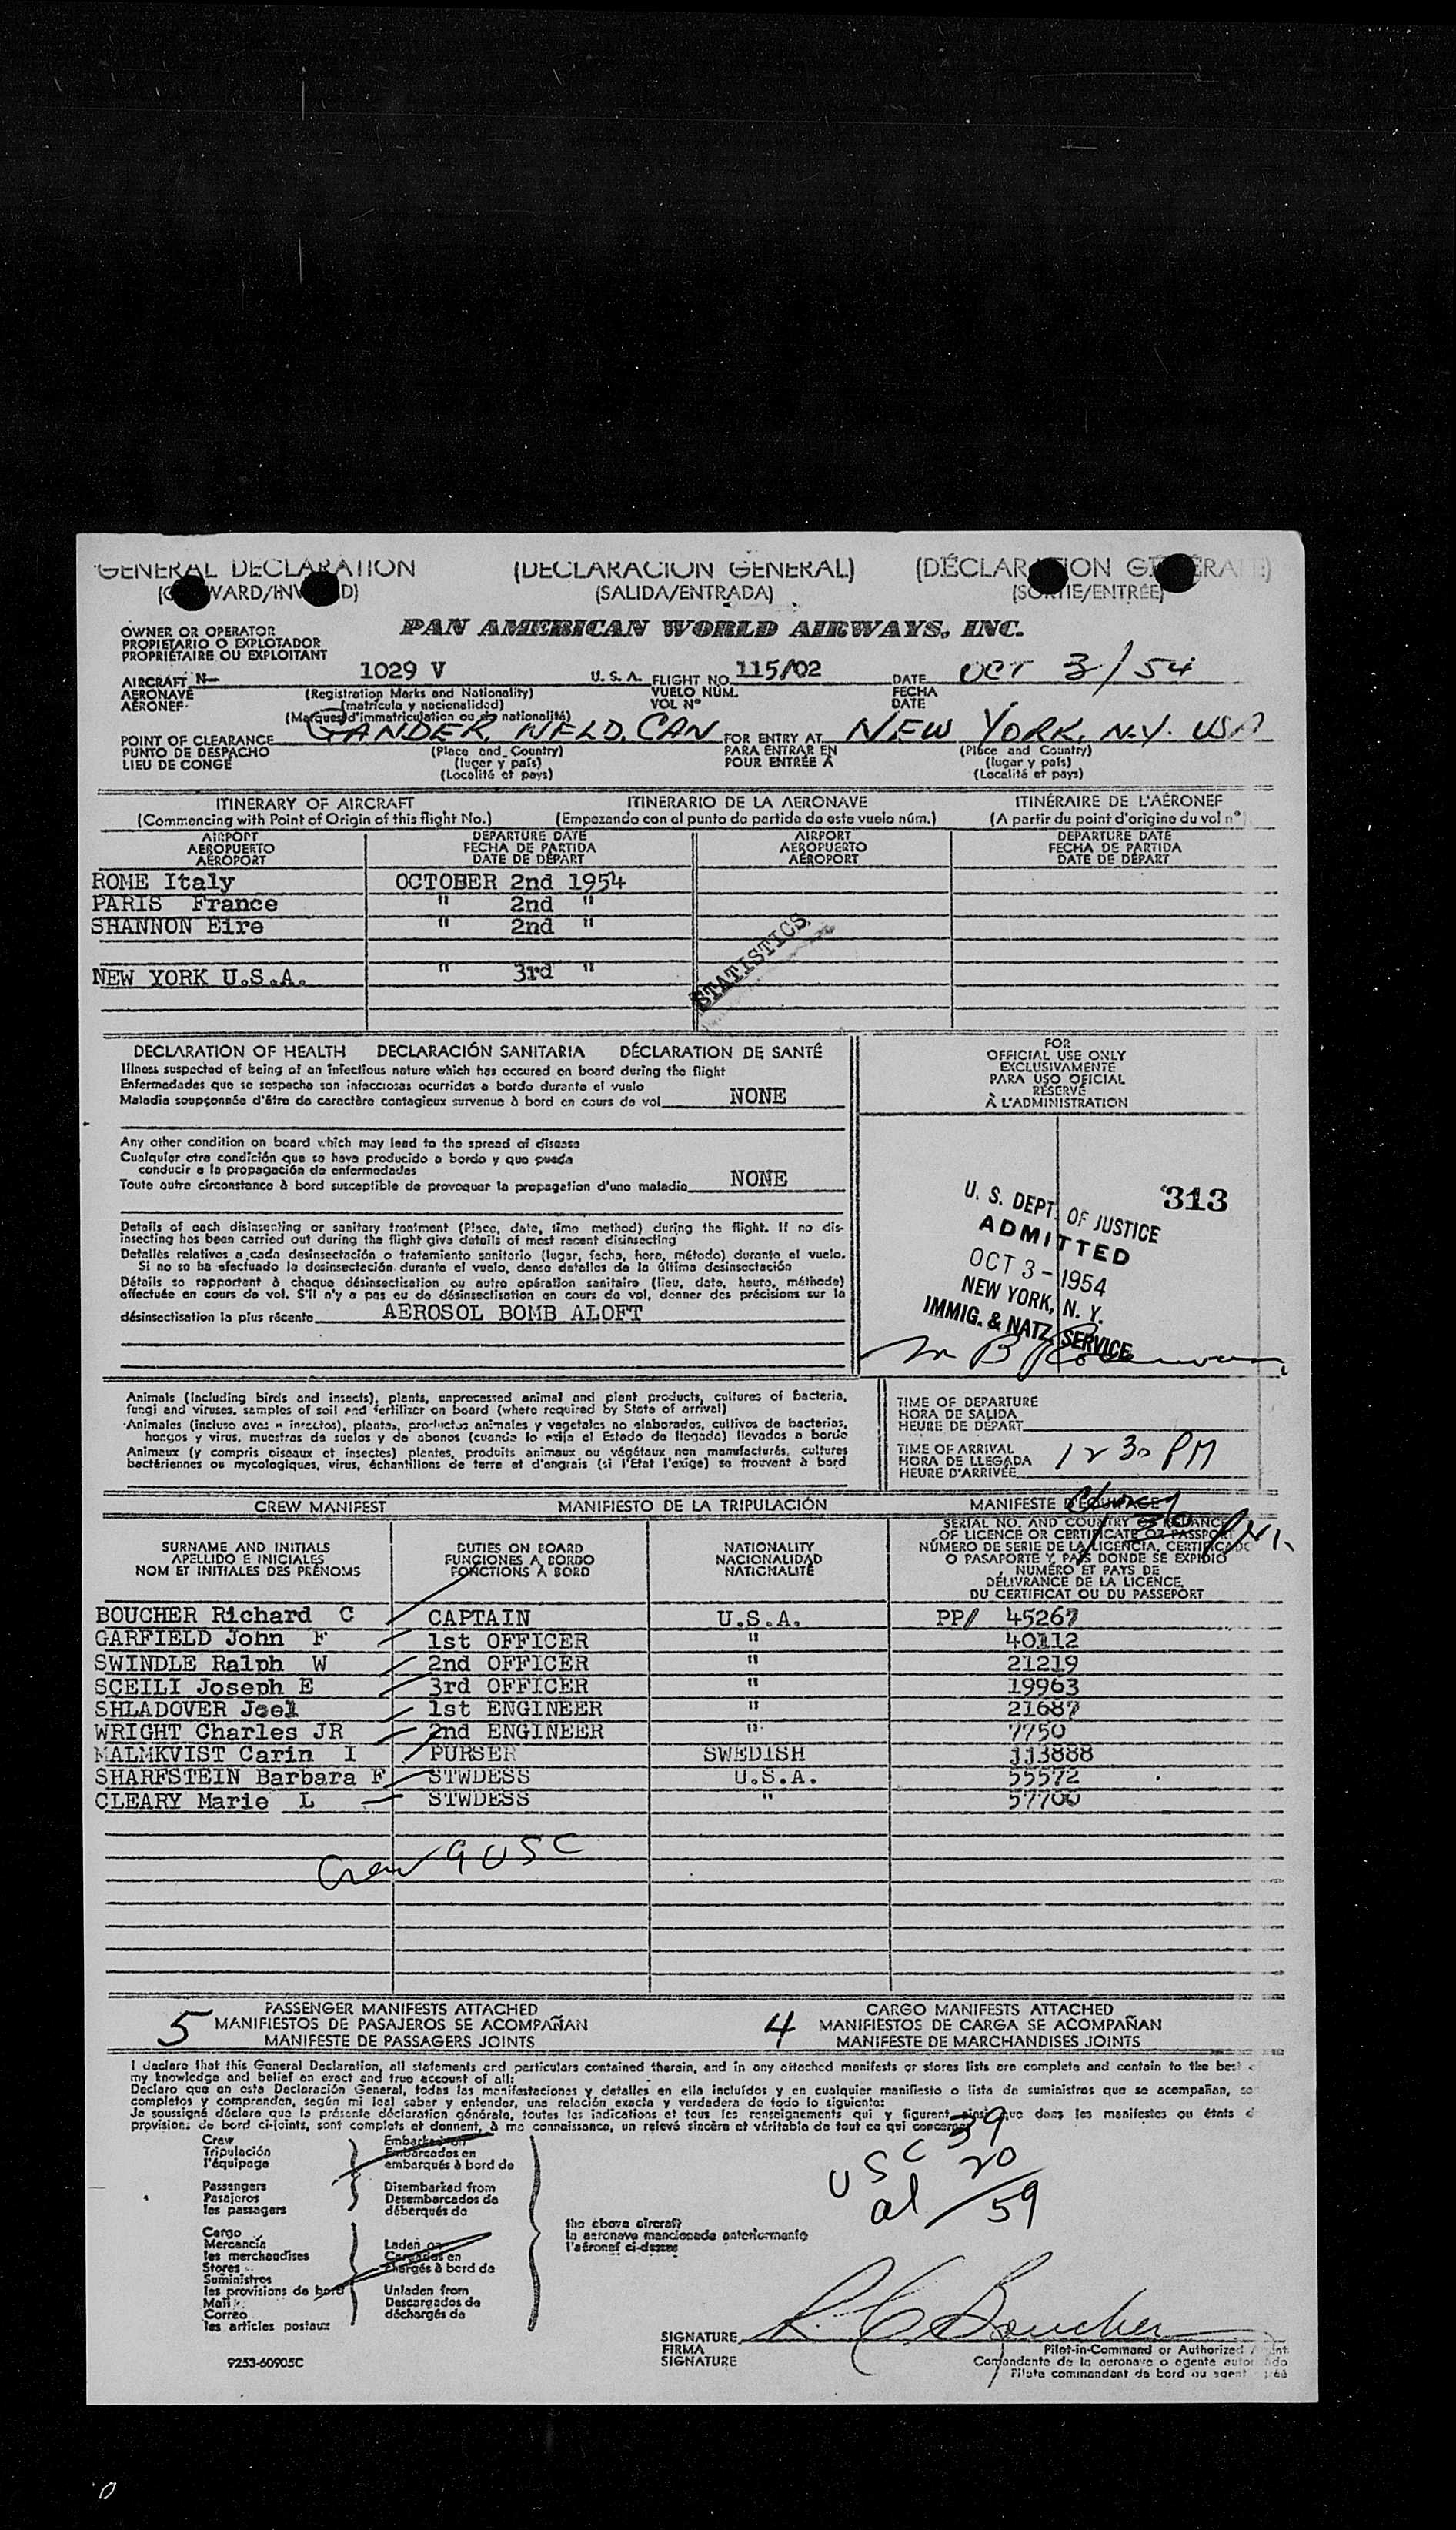 GENERAL DECLARATION (DECLARACION GENERAL) (DÉCLARATION GÉNÉRALE)
(SALIDA/ENTRADA)
OWNER OR OPERATOR
PROPIETARIO O EXPLOTADOR
PROPRIÉTAIRE OU EXPLOITANT
PAN AMERICAN WORLD AIRWAYS, INC.
AIRCRAFT N- 1029 V U. S. A. FLIGHT NO. 115/02 DATE OCT 3/54
AERONAVE (Registration Marks and Nationality) VUELO NÚM. FECHA
AÉRONEF (matrícula y nacionalidad) VOL Nº DATE
(Marques d'immatriculation ou de nationalité)
POINT OF CLEARANCE GANDER, NFLD. CAN FOR ENTRY AT NEW YORK, N.Y. USA
PUNTO DE DESPACHO (Place and Country) PARA ENTRAR EN (Place and Country)
LIEU DE CONGÉ (lugar y país) POUR ENTRÉE À (lugar y país)
(Localité et pays) (Localité et pays)
ITINERARY OF AIRCRAFT ITINERARIO DE LA AERONAVE ITINÉRAIRE DE L'AÉRONEF
(Commencing with Point of Origin of this flight No.) (Empezando con el punto de partida de este vuelo núm.) (A partir du point d'origine du vol nº)
AIRPORT DEPARTURE DATE AIRPORT DEPARTURE DATE
AEROPUERTO FECHA DE PARTIDA AEROPUERTO FECHA DE PARTIDA
AÉROPORT DATE DE DÉPART AÉROPORT DATE DE DÉPART
ROME Italy OCTOBER 2nd 1954
PARIS France " 2nd "
SHANNON Eire " 2nd "
NEW YORK U.S.A. " 3rd "
STATISTICS
DECLARATION OF HEALTH DECLARACIÓN SANITARIA DÉCLARATION DE SANTÉ
Illness suspected of being of an infectious nature which has occured on board during the flight
Enfermedades que se sospecha son infecciosas ocurridas a bordo durante el vuelo
Maladie soupçonnée d'être de caractère contagieux survenue à bord en cours de vol NONE
Any other condition on board which may lead to the spread of disease
Cualquier otra condición que se haya producido a bordo y que pueda
conducir a la propagación de enfermedades
Toute autre circonstance à bord susceptible de provoquer la propagation d'une maladie NONE
Details of each disinsecting or sanitary treatment (Place, date, time method) during the flight. If no dis-
insecting has been carried out during the flight give details of most recent disinsecting
Detalles relativos a cada desinsectación o tratamiento sanitario (lugar, fecha, hora, método) durante el vuelo.
Si no se ha efectuado la desinsectación durante el vuelo, dense detalles de la última desinsectación
Détails se rapportant à chaque désinsectisation ou autre opération sanitaire (lieu, date, heure, méthode)
effectuée en cours de vol. S'il n'y a pas eu de désinsectisation en cours de vol, donner des précisions sur la
désinsectisation la plus récente AEROSOL BOMB ALOFT
FOR
OFFICIAL USE ONLY
EXCLUSIVAMENTE
PARA USO OFICIAL
RÉSERVÉ
À L'ADMINISTRATION
313
U. S. DEPT. OF JUSTICE
ADMITTED
OCT 3 - 1954
NEW YORK, N. Y.
IMMIG. & NATZ. SERVICE
Animals (including birds and insects), plants, unprocessed animal and plant products, cultures of bacteria,
fungi and viruses, samples of soil and fertilizer on board (where required by State of arrival)
Animales (incluso aves e insectos), plantas, productos animales y vegetales no elaborados, cultivos de bacterias,
hongos y virus, muestras de suelos y de abonos (cuando lo exija el Estado de llegada) llevados a bordo
Animaux (y compris oiseaux et insectes) plantes, produits animaux ou végétaux non manufacturés, cultures
bactériennes ou mycologiques, virus, échantillons de terre et d'engrais (si l'Etat l'exige) se trouvent à bord
TIME OF DEPARTURE
HORA DE SALIDA
HEURE DE DÉPART
TIME OF ARRIVAL
HORA DE LLEGADA 12 30 PM
HEURE D'ARRIVÉE
CREW MANIFEST MANIFIESTO DE LA TRIPULACIÓN MANIFESTE D'ÉQUIPAGE
SERIAL NO. AND COUNTRY OF ISSUANCE
OF LICENCE OR CERTIFICATE OR PASSPORT
SURNAME AND INITIALS DUTIES ON BOARD NATIONALITY NÚMERO DE SERIE DE LA LICENCIA, CERTIFICADO
APELLIDO E INICIALES FUNCIONES A BORDO NACIONALIDAD O PASAPORTE Y PAÍS DONDE SE EXPIDIO
NOM ET INITIALES DES PRÉNOMS FONCTIONS À BORD NATIONALITÉ NUMÉRO ET PAYS DE
DÉLIVRANCE DE LA LICENCE
DU CERTIFICAT OU DU PASSEPORT
BOUCHER Richard C CAPTAIN U.S.A. PP/ 45267
GARFIELD John F 1st OFFICER " 40112
SWINDLE Ralph W 2nd OFFICER " 21219
SCEILI Joseph E 3rd OFFICER " 19963
SHLADOVER Joel 1st ENGINEER " 21687
WRIGHT Charles JR 2nd ENGINEER " 7750
MALMKVIST Carin I PURSER SWEDISH 113888
SHARFSTEIN Barbara F STWDESS U.S.A. 55572
CLEARY Marie L STWDESS " 57700
Crew 9 USC
5 PASSENGER MANIFESTS ATTACHED 4 CARGO MANIFESTS ATTACHED
MANIFIESTOS DE PASAJEROS SE ACOMPAÑAN MANIFIESTOS DE CARGA SE ACOMPAÑAN
MANIFESTE DE PASSAGERS JOINTS MANIFESTE DE MARCHANDISES JOINTS
I declare that this General Declaration, all statements and particulars contained therein, and in any attached manifests or stores lists are complete and contain to the best
my knowledge and belief an exact and true account of all:
Declaro que en esta Declaración General, todas las manifestaciones y detalles en ella incluídos y en cualquier manifiesto o lista de suministros que se acompañan,
completos y comprenden, según mi leal saber y entender, una relación exacta y verdadera de todo lo siguiente:
Je soussigné déclare que la présente déclaration générale, toutes les indications et tous les renseignements qui y figurent ainsi que dans les manifestes ou états
provisions de bord ci-joints, sont complets et donnent, à ma connaissance, un relevé sincère et véritable de tout ce qui concerne
Crew Embarked on
Tripulación Embarcados en
l'équipage embarqués à bord de
Passengers Disembarked from
Pasajeros Desembarcados de
les passagers débarqués de
USC 39
al 20
59
Cargo
Mercancía Laden on
les merchandises Cargados en
Stores chargés à bord de
Suministros
les provisions de bord Unladen from
Mail Descargados de
Correo déchargés de
les articles postaux
the above aircraft
la aeronave mencionada anteriormente
l'aéronef ci-dessus
SIGNATURE R. C. Boucher
FIRMA Pilot-in-Command or Authorized
SIGNATURE Comandante de la aeronave o agente
Pilote commandant de bord ou agent
9253-60905C